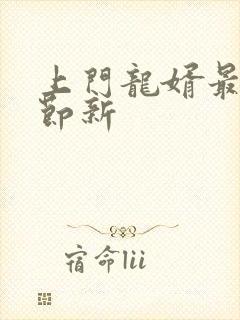 上門龍婿最
節新
宿命lii